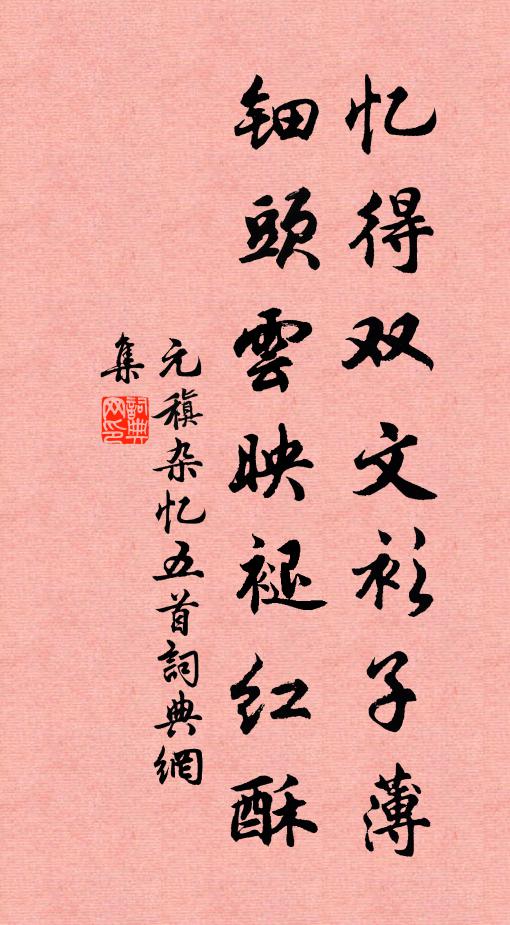 忆得双文衫子薄
钿頭雲映褪红酥
元稹杂忆五首詞典網
集
詞典网印